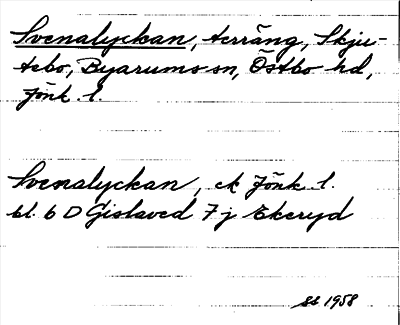 Svenalyckan, terräng, Skju-
tebo, Byarums sn, Östbo hd,
Jönk. l.
Svenalyckan, ek Jönk. l.
bl. 6 D Gislaved 7 j Ekeryd
1958